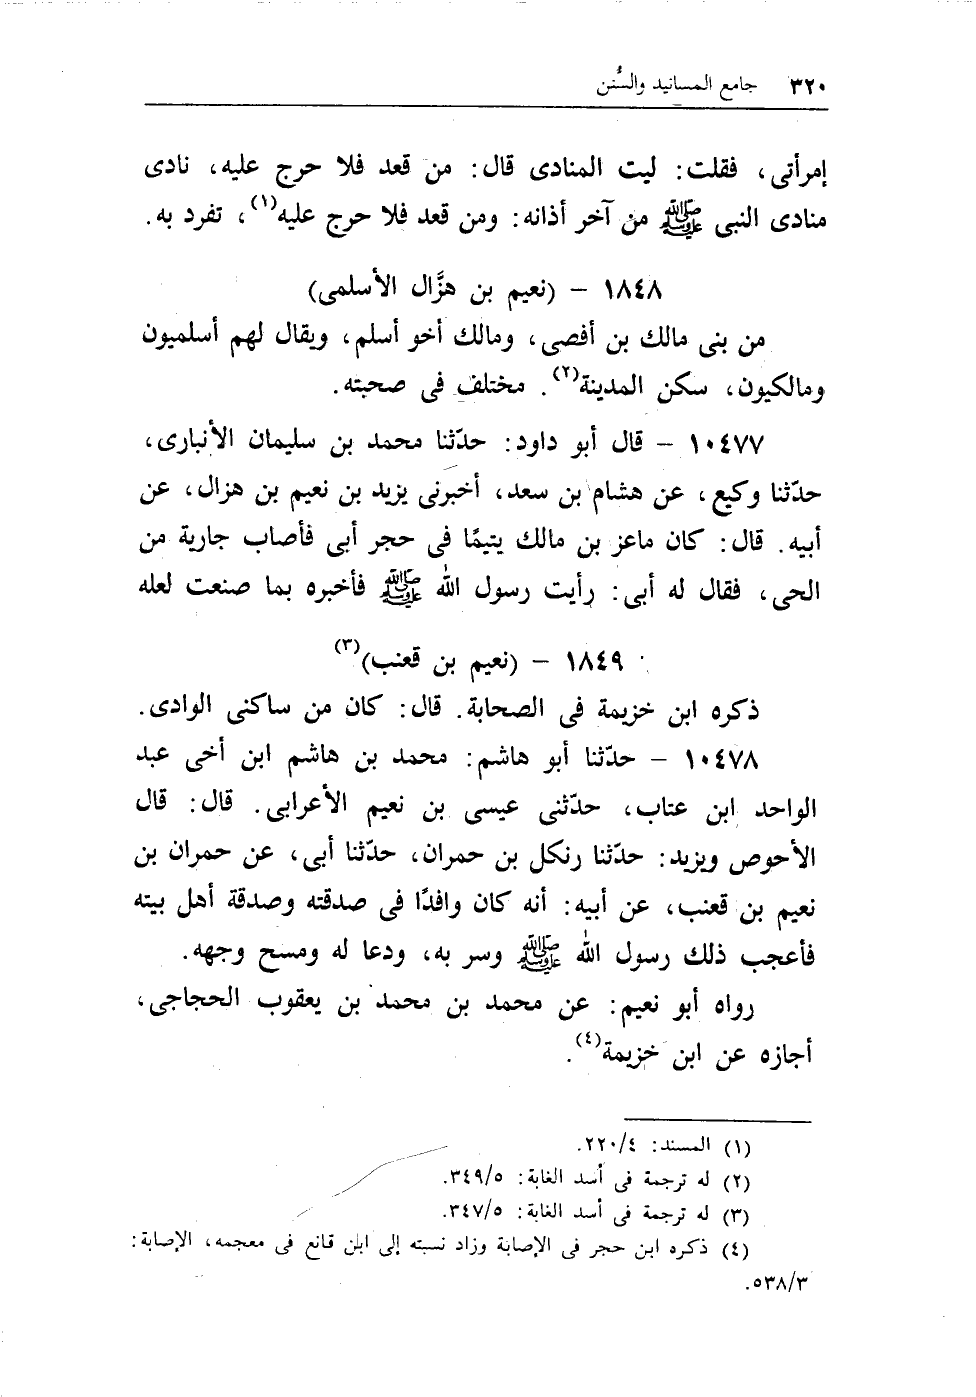 ٣٢٠ جامع المسانيد والسُّنن
إمرأتى، فقلت: ليت المنادى قال: من قعد فلا حرج عليه، نادى
منادى النبى ﷺ من آخر أذانه: ومن قعد فلا حرج عليه(١)، تفرد به.
١٨٤٨ - (نعيم بن هزَّال الأسلمى)
من بنى مالك بن أفصى، ومالك أخو أسلم، ويقال لهم أسلميون
ومالكيون، سكن المدينة(٢). مختلف فى صحبته.
١٠٤٧٧ - قال أبو داود: حدّثنا محمد بن سليمان الأنبارى،
حدّثنا وكيع، عن هشام بن سعد، أخبرنى يزيد بن نعيم بن هزال، عن
أبيه. قال: كان ماعز بن مالك يتيمًا فى حجر أبى فأصاب جارية من
الحى، فقال له أبى: رأيت رسول الله ﷺ فأخبره بما صنعت لعله
١٨٤٩ - (نعيم بن قعنب)(٣)
ذكره ابن خزيمة فى الصحابة. قال: كان من ساكنى الوادى.
١٠٤٧٨ - حدّثنا أبو هاشم: محمد بن هاشم ابن أخى عبد
الواحد ابن عتاب، حدّثنى عيسى بن نعيم الأعرابى. قال: قال
الأحوص ويزيد: حدّثنا رنكل بن حمران، حدّثنا أبى، عن حمران بن
نعيم بن قعنب، عن أبيه: أنه كان وافدًا فى صدقته وصدقة أهل بيته
فأعجب ذلك رسول الله ﷺ وسر به، ودعا له ومسح وجهه.
رواه أبو نعيم: عن محمد بن محمد بن يعقوب الحجاجى،
أجازه عن ابن خزيمة(٤).
(١) المسند: ٢٢٠/٤.
(٢) له ترجمة فى أسد الغابة: ٣٤٩/٥.
(٣) له ترجمة فى أسد الغابة: ٣٤٧/٥.
(٤) ذكره ابن حجر فى الإصابة وزاد نسبته إلى ابن قانع فى معجمه، الإصابة:
٥٣٨/٣.